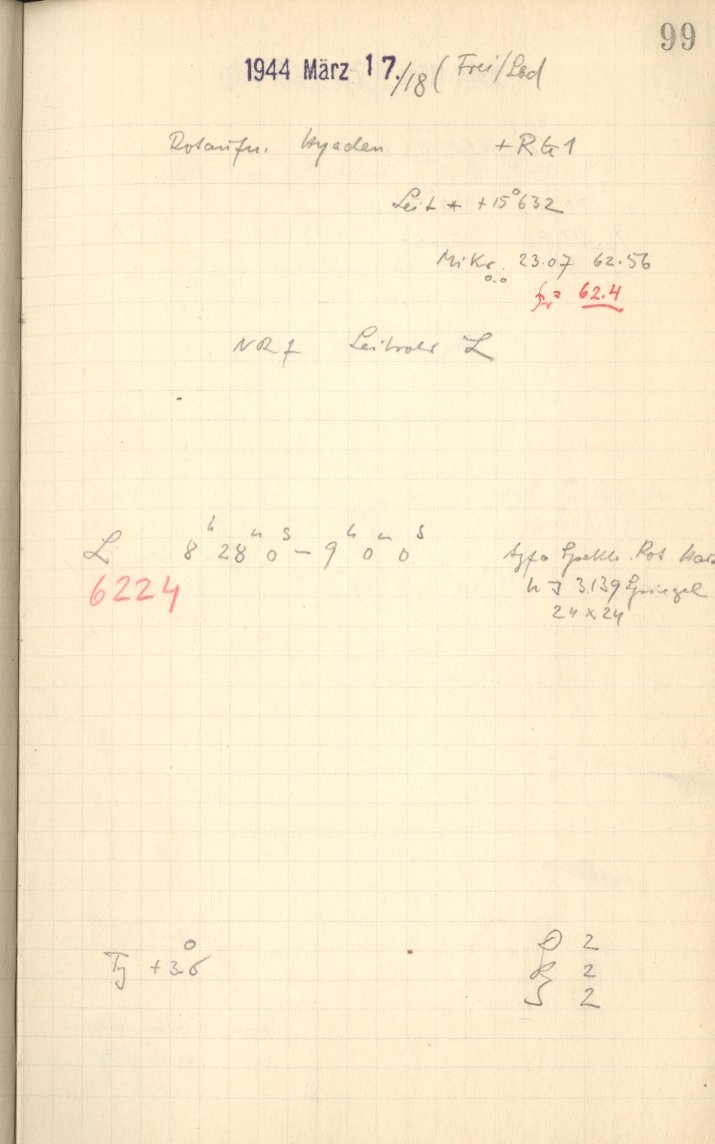 99
1944 März 17./18 (Frei/
Rotaufn. Hyaden +RG1
Leit * +15°632
Mikr. 23.07 62.56
0.0
62.4
NR f Leitrohr L
L 8h 28m 0s – 9h 0m 0s Agfa Spektr. Rot
6224
3139 Spiegel
24 x 24
+3.6°
2
2
S 2